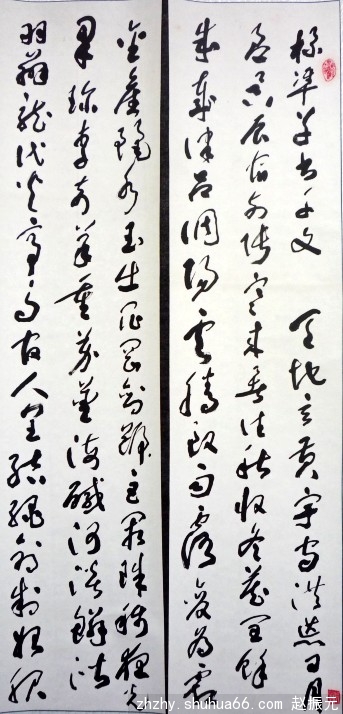 標準草書千文 天地玄黃宇宙洪荒日月
盈昃辰宿列張寒來暑往秋收冬藏閏餘
成歲律呂調陽雲騰致雨露為霜
金麗水玉出崑岡劍號巨闕珠稱夜光
果珍李柰菜重芥薑海鹹河淡鱗潛
羽翔龍火帝鳥官人皇
zhzhy.shuhua66.com 赵振元